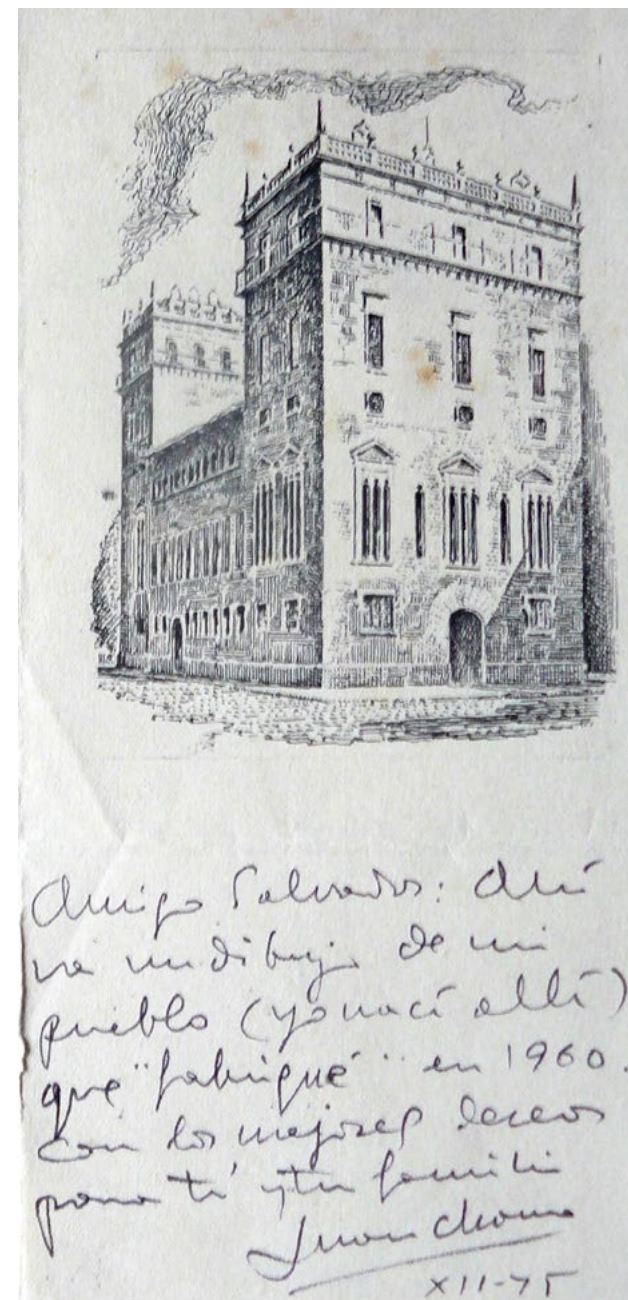 Amigo Salvador: Ahí
va un dibujo de mi
pueblo (yo nací allí)
que "fabriqué" en 1960.
Con los mejores deseos
para ti y tu familia
Juan
XII-75